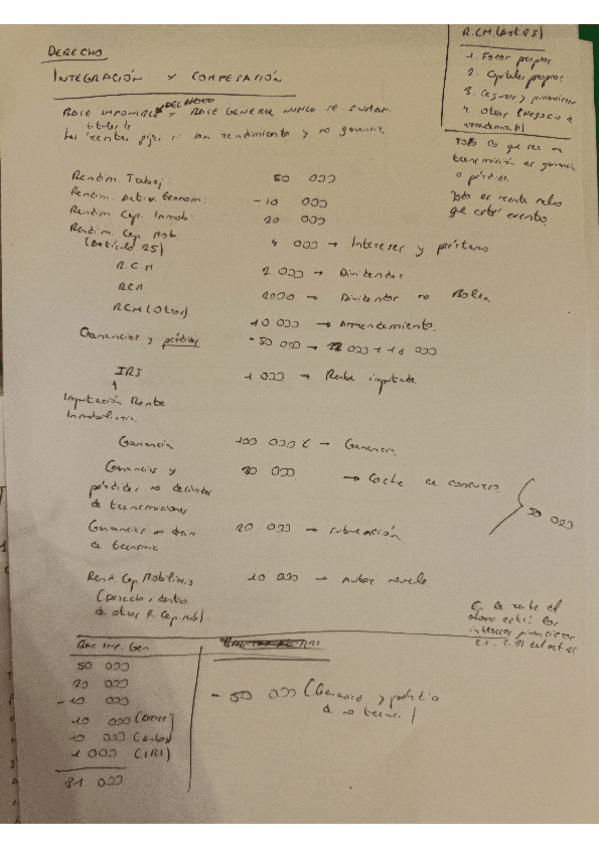 DERECHO
INTEGRACIÓN Y COMPESACIÓN
BASE IMPONIBLE DEL AHORRO Y BASE GENERAL NUNCA SE SUMAN
Rendim. Trabaj: 50 000
Rendim. Activ. Econom: -10 000
Rendim. Cap. Inmob: 20 000
Rendim. Cap. Mob.
(Artículo 25) 4 000 → Intereses y préstamo
R.C.M 2 000 → Dividendos
RCM 2000 → Dividendos no Bolsa
RCM (Otros) 10 000 → Arrendamiento.
Ganancias y pérdidas -50 000 →
IRI 1 000 → Renta imputada
Imputación Renta
Inmobiliaria
Ganancia 100 000 € → Ganancia
Ganancias y 30 000 → Coche de concurso
pérdidas no derivadas
de transmisiones
50 000
20 000 → subvención
Rend. Cap. Mobiliario 10 000 → Autor novela
(Derecho, dentro
de otros R. Cap. Mob)
Bas. Imp. Gen
50 000
20 000
-10 000
10 000
10 000 (Autor)
1 000 (IRI)
81 000
- 50 000 (Ganancia y pérdida
de no
R.CM (Art 25)
1. Fondos propios
2. Capitales propios
3. Seguros y financieros
4. Otros (Negocio o
arrendamient)
TODO lo que sea una
transmisión es ganancia
o pérdida.
Todo es renta salvo
que esté exento.
En la renta el
ahorro están los
intereses financieros